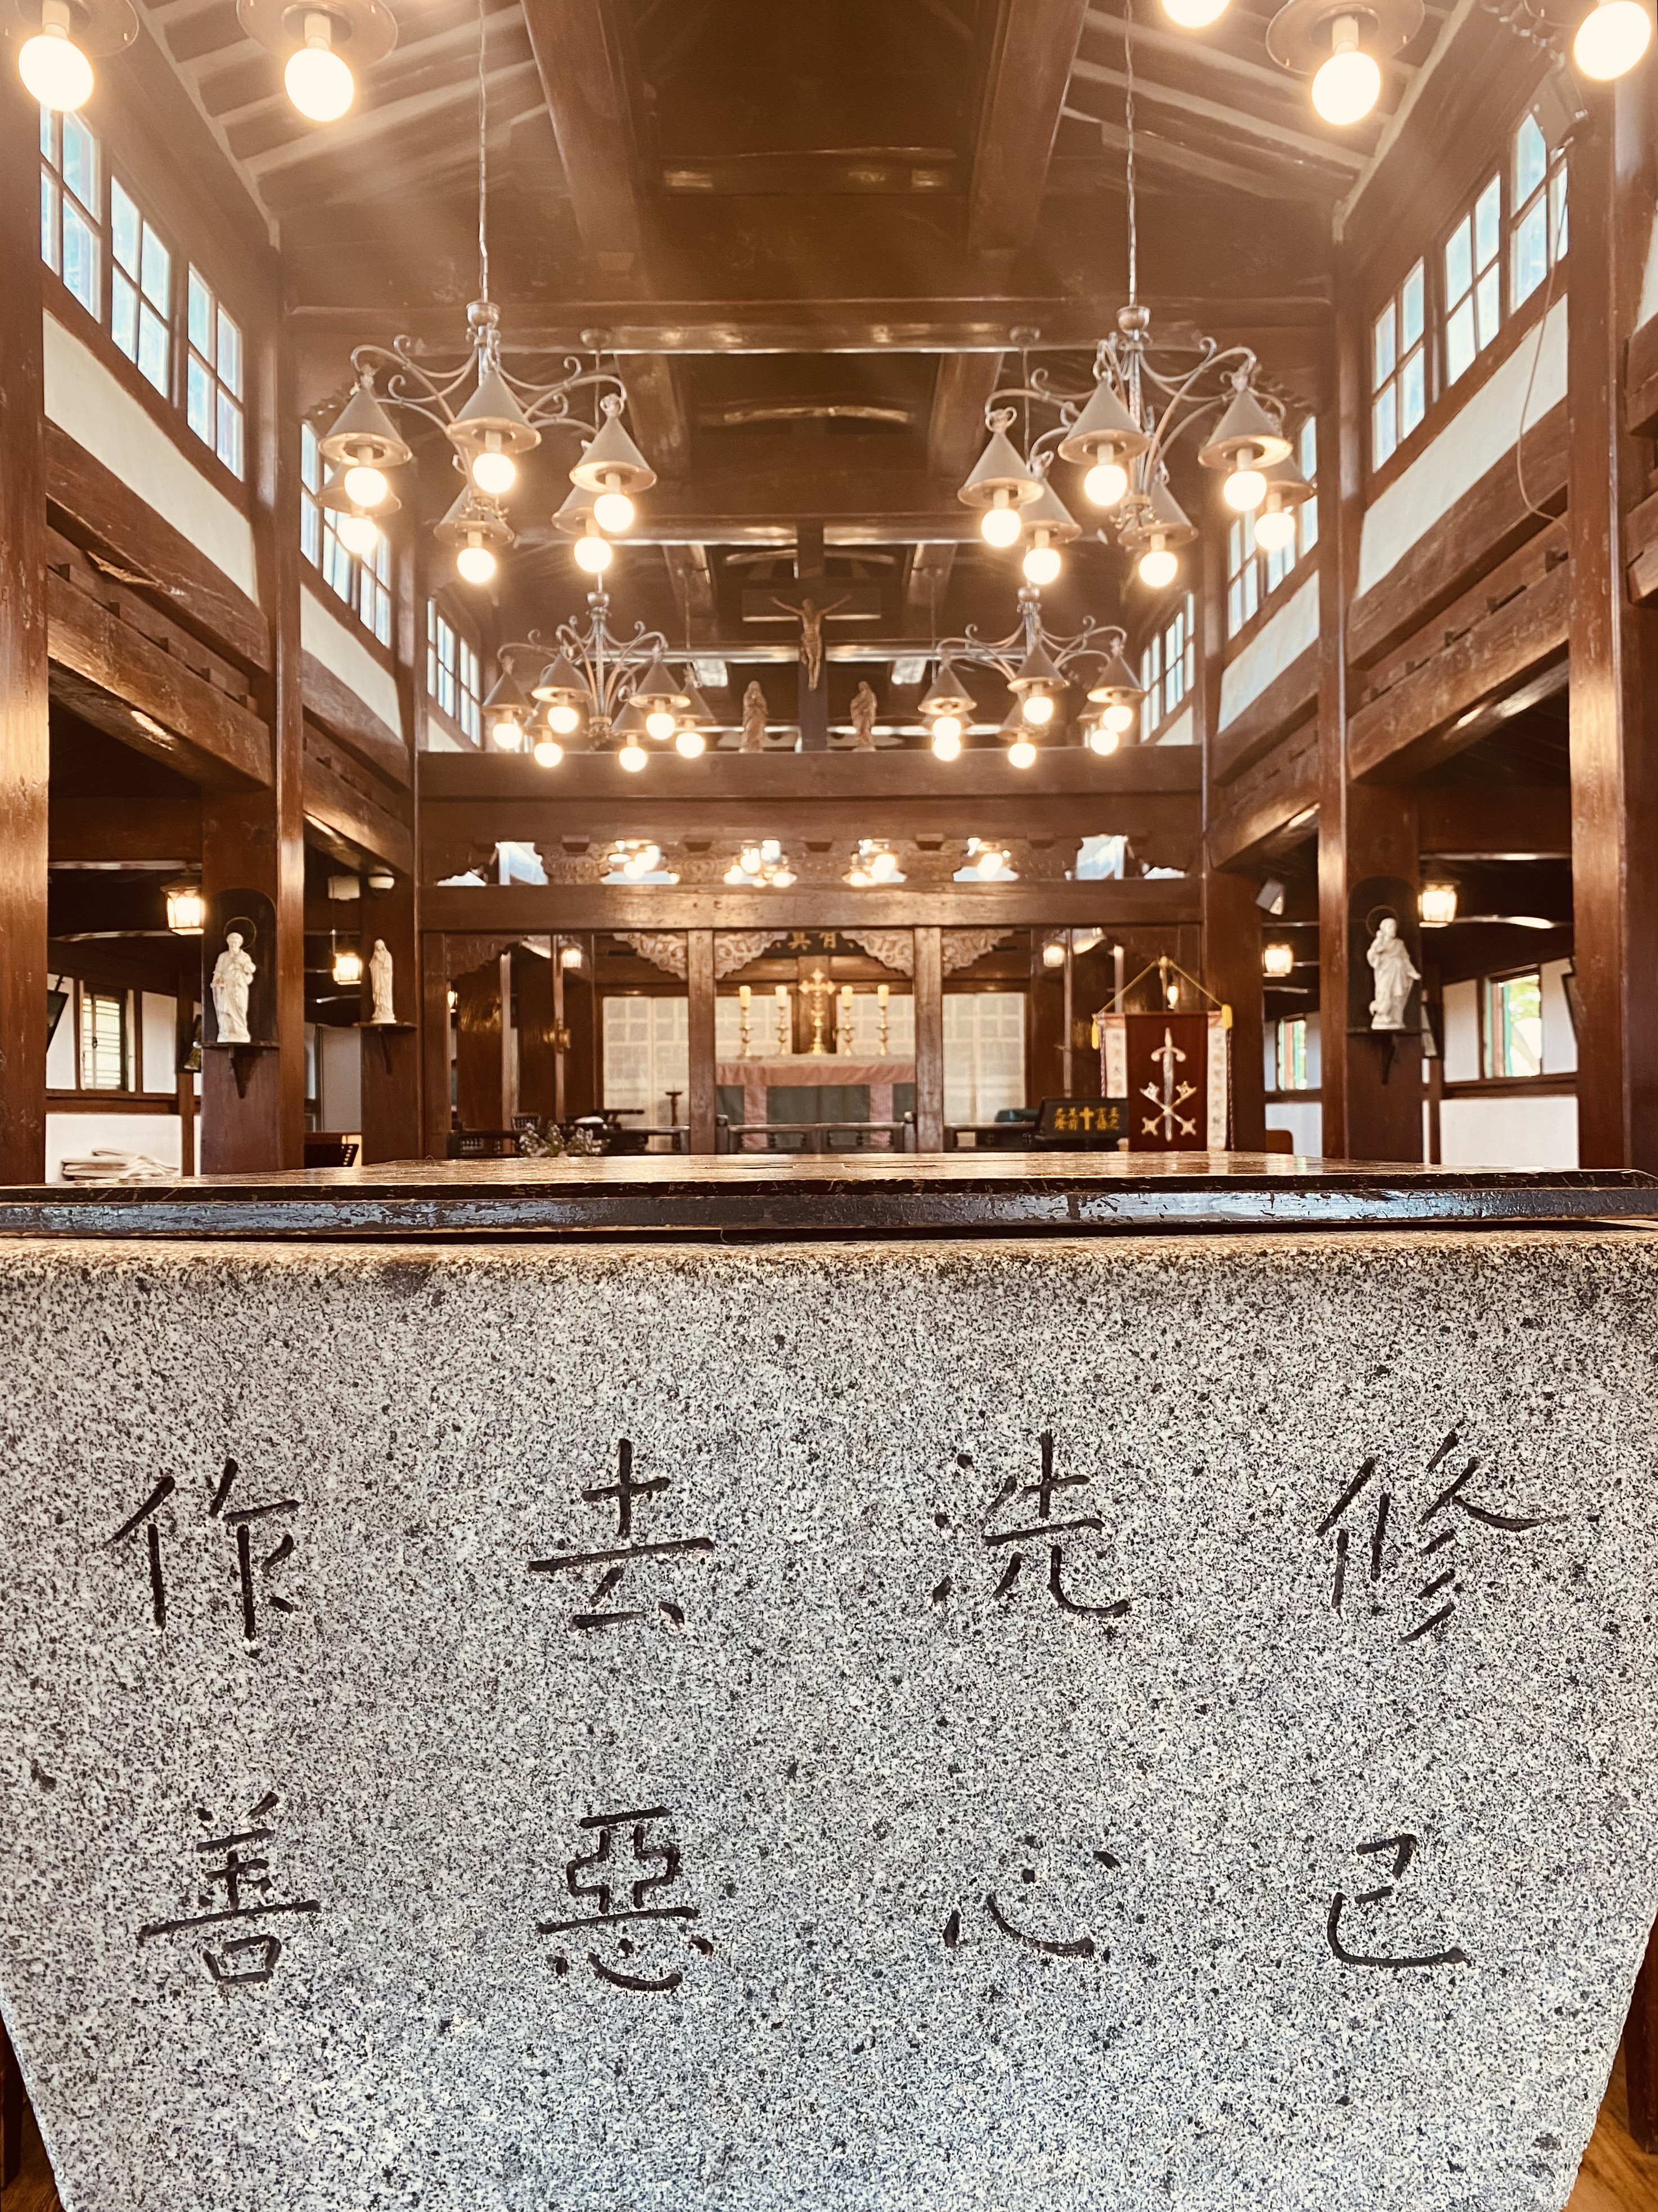 修己
洗心
去惡
作善